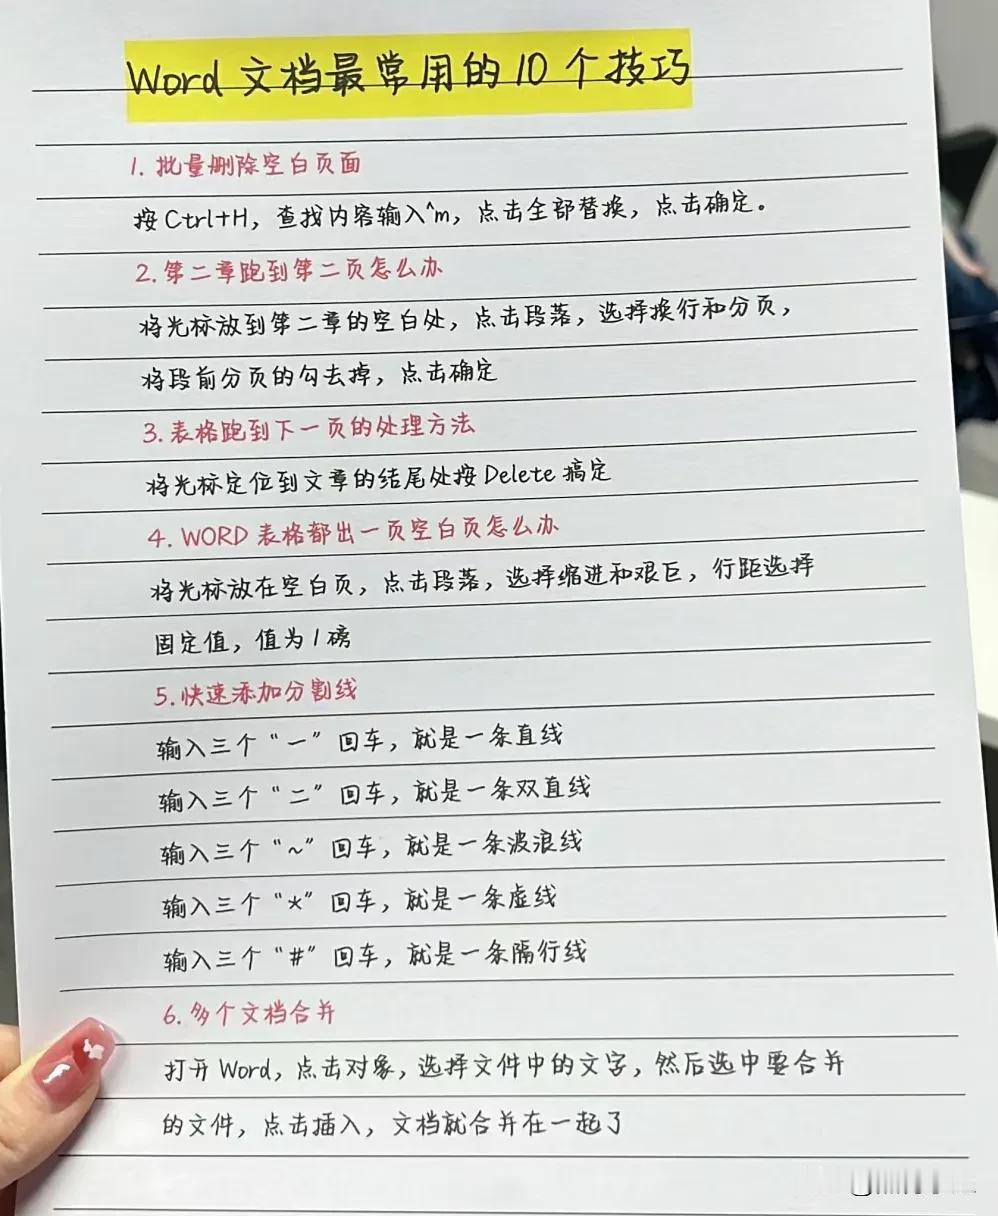 Word 文档最常用的10个技巧
1. 批量删除空白页面
按Ctrl+H，查找内容输入^m，点击全部替换，点击确定。
2. 第二章跑到第二页怎么办
将光标放到第二章的空白处，点击段落，选择换行和分页，
将段前分页的勾去掉，点击确定
3. 表格跑到下一页的处理方法
将光标定位到文章的结尾处按Delete搞定
4. WORD 表格都出一页空白页怎么办
将光标放在空白页，点击段落，选择缩进和艰巨，行距选择
固定值，值为1磅
5. 快速添加分割线
输入三个“一”回车，就是一条直线
输入三个“二”回车，就是一条双直线
输入三个“~”回车，就是一条波浪线
输入三个“*”回车，就是一条虚线
输入三个“#”回车，就是一条隔行线
6. 多个文档合并
打开Word，点击对象，选择文件中的文字，然后选中要合并
的文件，点击插入，文档就合并在一起了